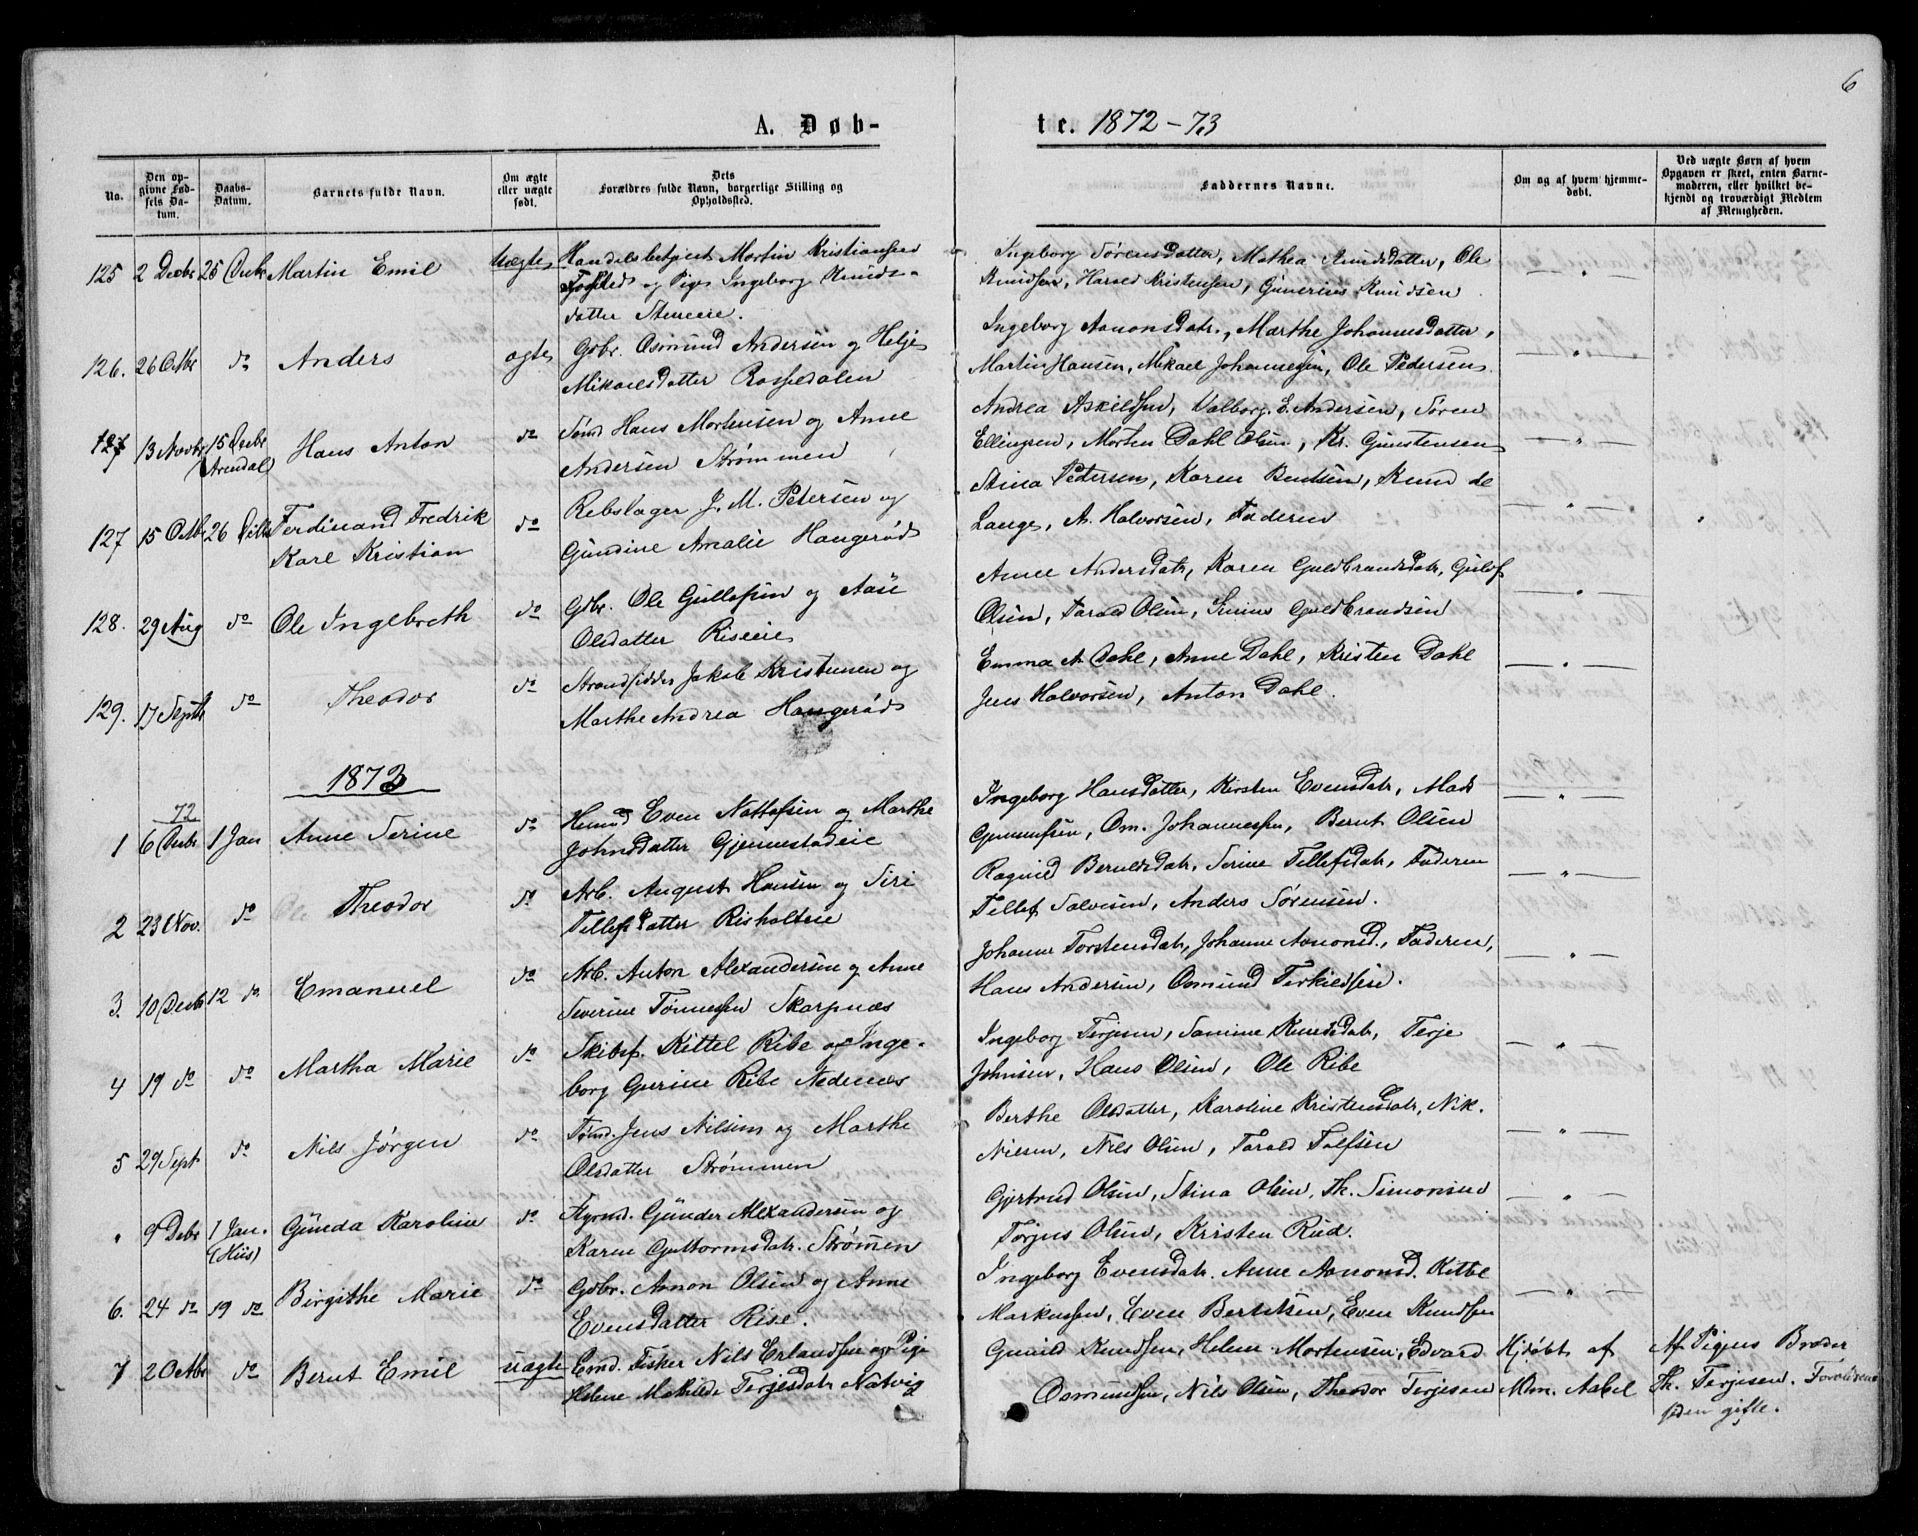 6
A. Døb-
te. 1872-73
No.
Den opgivne Fødsels Datum.
Daabs-Datum.
Barnets fulde Navn.
Om ægte eller uægte født.
Dets Forældres fulde Navn, borgerlige Stilling og Opholdssted.
Faddernes Navne.
Om og af hvem hjemmedøbt.
Ved uægte Børn af hvem Opgaven er skeet, enten Barnemoderen, eller hvilket bekjendt og troværdigt Medlem af Menigheden.
125 2 Decbr 25 Decbr Martin Emil Uægte Handelsbetjent Mortin Kristiansen
og Pige Ingeborg Knuds-
datter
Ingeborg Sørensdatter, Mathea Amundsdatter, Ole
Knudsen, Harald Kristensen, Gunerius Knudsen
126. 26 Octbr do Anders ægte Gdbr. Osmund Andersen og Helje
Mikaelsdatter Rossedalen
Ingeborg Aanonsdatr., Marthe Johannesdatter,
Martin Hansen, Mikael Johannessen, Ole Pedersen
127 13 Novbr 15 Decbr Hans Anton do Tømd Hans Mortensen og Anne
(Arendal)
Andersen Strømmen
Andrea Askildsen, Valborg E. Andersen, Søren
Ellingsen, Morten Dahl Olsen, Kr. Gunstensen
127 15 Octbr 26 Ferdinand Fredrik do Rebslager J. M. Petersen og
Karl Kristian
Gundine Amalie Haugerød
Stina Petersen, Karen Bentsen, Knud de
Lange, A. Halvorsen, Faderen
128. 29 Aug do Ole Ingebreth do Gdbr. Ole Gullofsen og Aase
Olsdatter Riseeie
Anne Andersdatr, Karen Guldbrandsdatr, Gulof
Olsen, Tarald Olsen, Guldbrandsen
129. 17 Septbr do Theodor do Strandsidder Jakob Kristensen og
Marthe Andrea Haugerød
Emma A. Dahl, Anne Dahl, Kristen Dahl
Jens Halvorsen, Anton Dahl.
1873
72
1 6 Decbr 1 Jan Anne Serine do Even Nottofsen og Marthe
Johnsdatter Gjennestadeie
Ingeborg Hansdatter, Kirsten Evensdatr, Mads
Gunnufsen, Om. Johannessen, Bernt Olsen
2 23 Nov. do Theodor do Arb. August Hansen og Siri
Tellefsdatter Risholteie
Ragnild Berntsdatr, Serine Tellefsdatr, Faderen
Tellef Salvesen, Anders Sørensen.
3. 10 Decbr 12 do Emanuel do Arb. Anton Alexandersen og Anne
Severine Tønnessen Skarpnæs
Johanne Torstensdatr, Johanne Aanonsd., Faderen,
Hans Andersen, Osmund Terkildsen.
4 19 do do Martha Marie do Skibsf. Kittel Ribe og Inge-
borg Gurine Ribe Nedenæs
Ingeborg Terjesen, Samine Knudsdatr, Terje
Johnsen, Hans Olsen, Ole Ribe
5 29 Sept do Nils Jørgen do Tømd. Jens Nilsen og Marthe
Olsdatter Strømmen
Berthe Olsdatter, Karoline Kristensdatr, Nik.
Nielsen, Nils Olsen, Tarald Tolfsen
" 9 Debr 1 Jan. Gunda Karoline do Styrmd. Gunder Alexandersen og
(Hiis)
Karen Guttormsdatr. Strømen
Gjertrud Olsen, Stina Olsen, Th. Simonsen
Torjus Olsen, Kristen Rud.
6. 24 do 19 do Birgithe Marie do Gdbr. Aanon Olsen og Anne
Evensdatter Rise.
Ingeborg Evensdatr. Anne Aanonsd. Kittel
Markussen, Even Bertelsen, Even Knudsen
7 2 Octbr do Bernt Emil uægte Emd. Fisker Nils Erlandsen og Pige
Helene Mathilde Terjesdatr Natvig
Gunild Knudsen, Helene Mortensen, Edvard
Osmundsen, Nils Olsen, Theodor Terjesen
Hjdøbt af
Mdm. Aabel
Af Pigens Broder
Th. Terjesen. Forældrene
siden gifte.